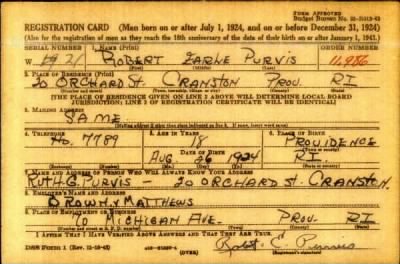 FORM APPROVED
REGISTRATION CARD (Men born on or after July 1, 1924, and on or before December 31, 1924)
(Also for the registration of men as they reach the 18th anniversary of the date of their birth on or after January 1, 1943.)
SERIAL NUMBER 1. NAME (Print) ORDER NUMBER
W 21 ROBERT EARLE PURVIS 11,986
(First) (Middle) (Last)
2. PLACE OF RESIDENCE (Print)
20 ORCHARD St. CRANSTON PROV. RI
[THE PLACE OF RESIDENCE GIVEN ON LINE 2 ABOVE WILL DETERMINE LOCAL BOARD
JURISDICTION; LINE 2 OF REGISTRATION CERTIFICATE WILL BE IDENTICAL]
3. MAILING ADDRESS
SAME
4. TELEPHONE 5. AGE IN YEARS 6. PLACE OF BIRTH
Ho. 7789 18 PROVIDENCE
DATE OF BIRTH
AUG. 26 1924 RI.
7. NAME AND ADDRESS OF PERSON WHO WILL ALWAYS KNOW YOUR ADDRESS
RUTH G. PURVIS - 20 ORCHARD St. CRANSTON
8. EMPLOYER'S NAME AND ADDRESS
BROWN & MATTHEWS
9. PLACE OF EMPLOYMENT OR BUSINESS
10 MICHIGAN AVE. PROV. RI
I AFFIRM THAT I HAVE VERIFIED ABOVE ANSWERS AND THAT THEY ARE TRUE.
Robert E. Purvis